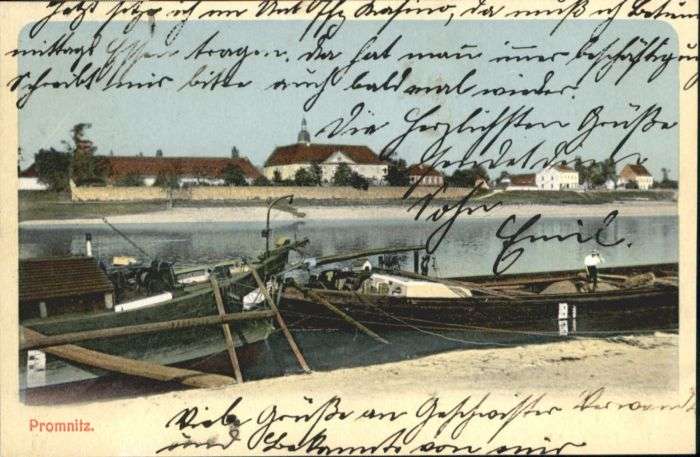 Jetzt sitze ich im Unt. Offz Kasino, da muß ich
mittags Essen tragen. Da hat man immer beschäftigung
Schreibt mir bitte auch bald mal wieder.
Die herzlichsten Grüße
sendet
Sohn
Emil.
Promnitz.
Viele Grüße an Geschwister Verwand
und Bekannte von mir